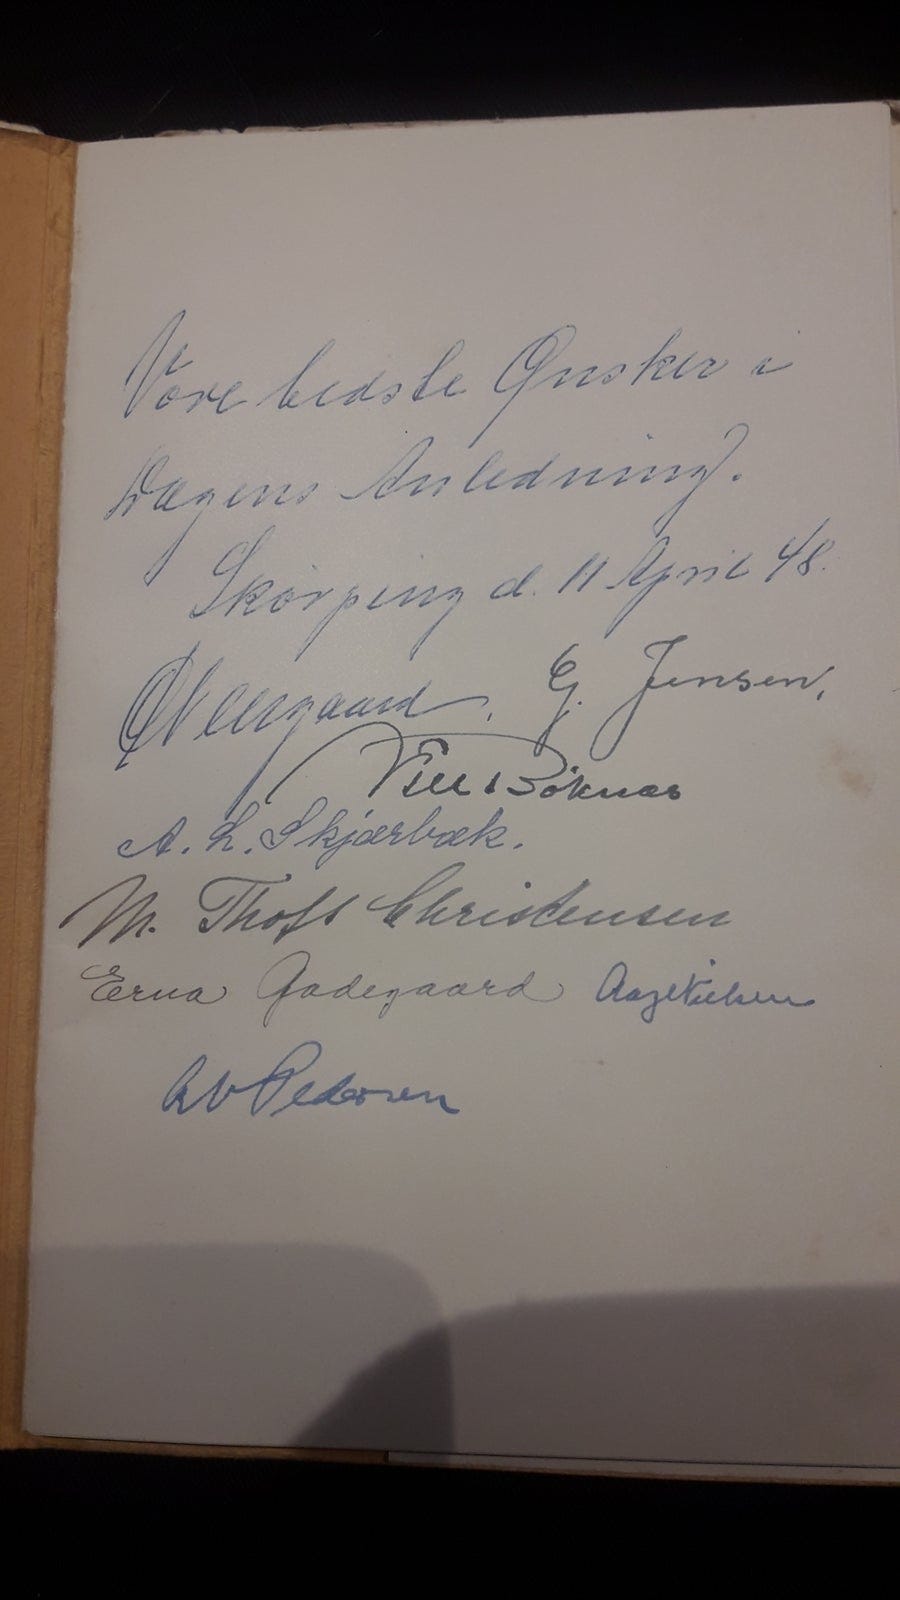 Vore bedste Ønsker i
Dagens Anledning.
Skørping d. 11 April 48.
E. Jensen,
A. L. Skjærbæk.
M. Thoft Christensen
Erna Gadegaard Aage Nielsen
Pedersen